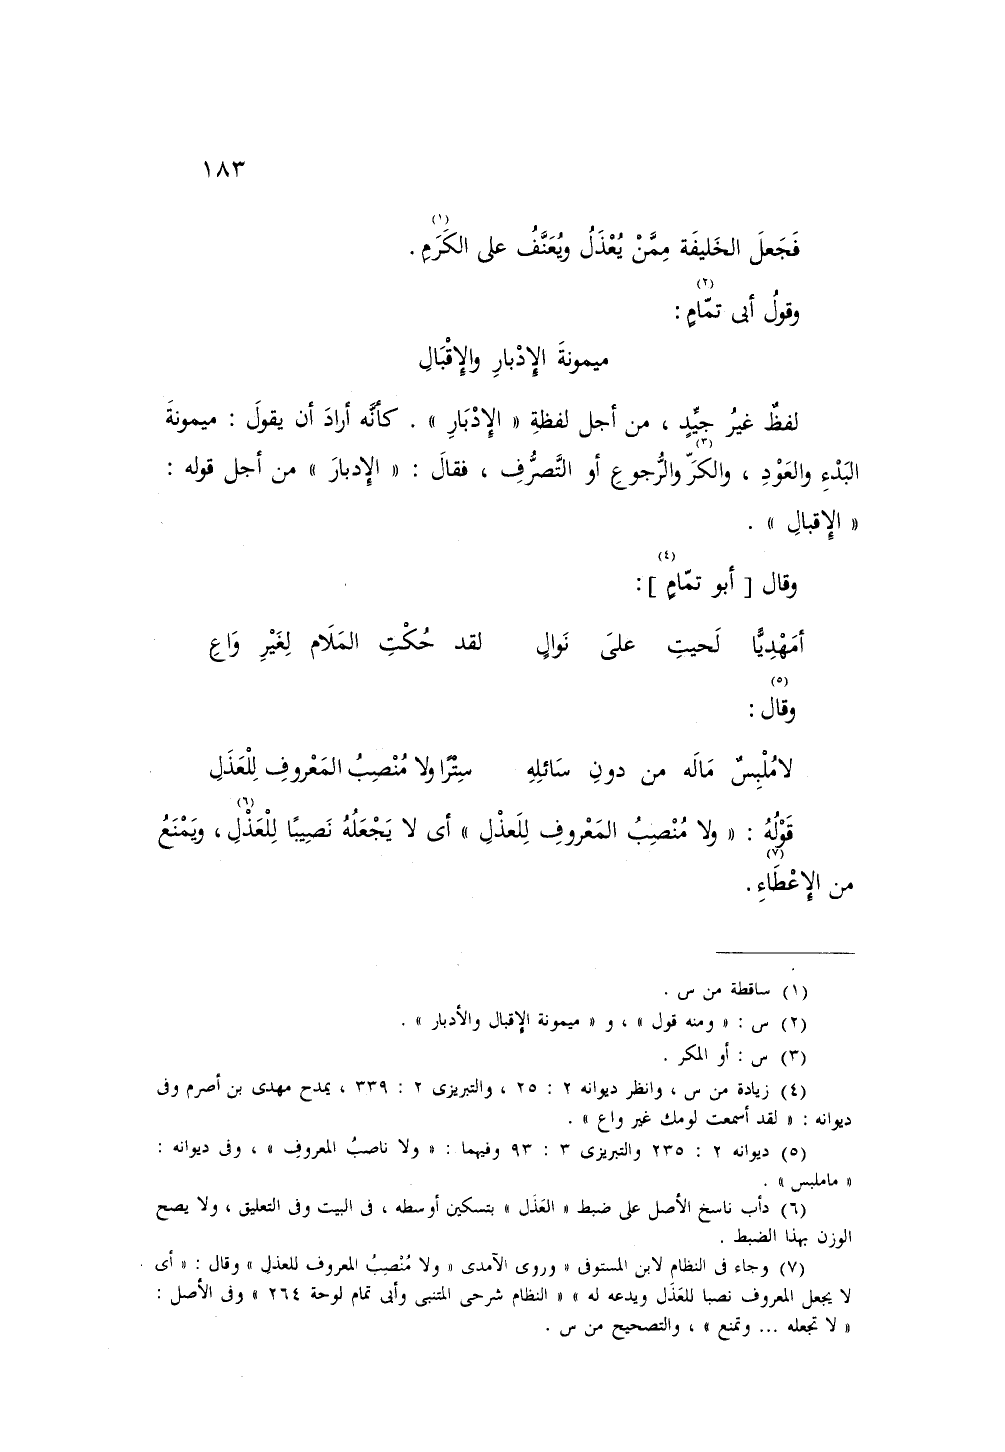 ١٨٣
فَجَعلَ الخَليفَة مِمَّنْ يُعْذَلُ ويُعَنَّفُ على الكَرَمِ(١) .
وقولُ أبى تمّامٍ(٢) :
ميمونةَ الإِدْبارِ والإِقْبَالِ
لفظٌ غيرُ جيِّدٍ ، من أجل لفظةِ « الإِدْبَارِ » . كأنَّه أرادَ أن يقولَ : ميمونةَ
البَدْءِ والعَوْدِ ، والكَرِّ(٣) والرُّجوعِ أو التَّصرُّفِ ، فقالَ : « الإِدبارَ » من أجل قوله :
« الإِقبالِ » .
وقال [ أبو تمّامٍ(٤) ] :
أمَهْدِيًّا لَحيتِ علىَ نَوالٍ لقد حُكْتِ المَلَام لِغَيْرِ وَاعِ
وقال(٥) :
لامُلْبِسٌ مَالَه من دونِ سَائلِهِ سِتْرًا ولا مُنْصِبُ المَعْروفِ لِلْعَذَلِ
قَوْلُهُ : « ولا مُنْصِبُ المَعْروفِ لِلَعذْلِ » أى لا يَجْعَلُهُ نَصِيبًا لِلْعَذْلِ(٦) ، ويَمْنَعُ
من الإِعْطَاءِ(٧) .
(١) ساقطة من س .
(٢) س : « ومنه قول » ، و « ميمونة الإقبال والأدبار » .
(٣) س : أو المكر .
(٤) زيادة من س ، وانظر ديوانه ٢ : ٢٥ ، والتبريزى ٢ : ٣٣٩ ، يمدح مهدى بن أصرم وفى
ديوانه : « لقد أسمعت لومك غير واع » .
(٥) ديوانه ٢ : ٢٣٥ والتبريزى ٣ : ٩٣ وفيهما : « ولا ناصبُ المعروفِ » ، وفى ديوانه :
« ماملبس » .
(٦) دأب ناسخ الأصل على ضبط « العَذَل » بتسكين أوسطه ، فى البيت وفى التعليق ، ولا يصح
الوزن بهذا الضبط .
(٧) وجاء فى النظام لابن المستوفى « وروى الآمدى « ولا مُنْصِبُ المعروف للعذلِ » وقال : « أى
لا يجعل المعروف نصبا للعَذَل ويدعه له » « النظام شرحى المتنبى وأبى تمام لوحة ٢٦٤ » وفى الأصل :
« لا تجعله ... وتمنع » ، والتصحيح من س .